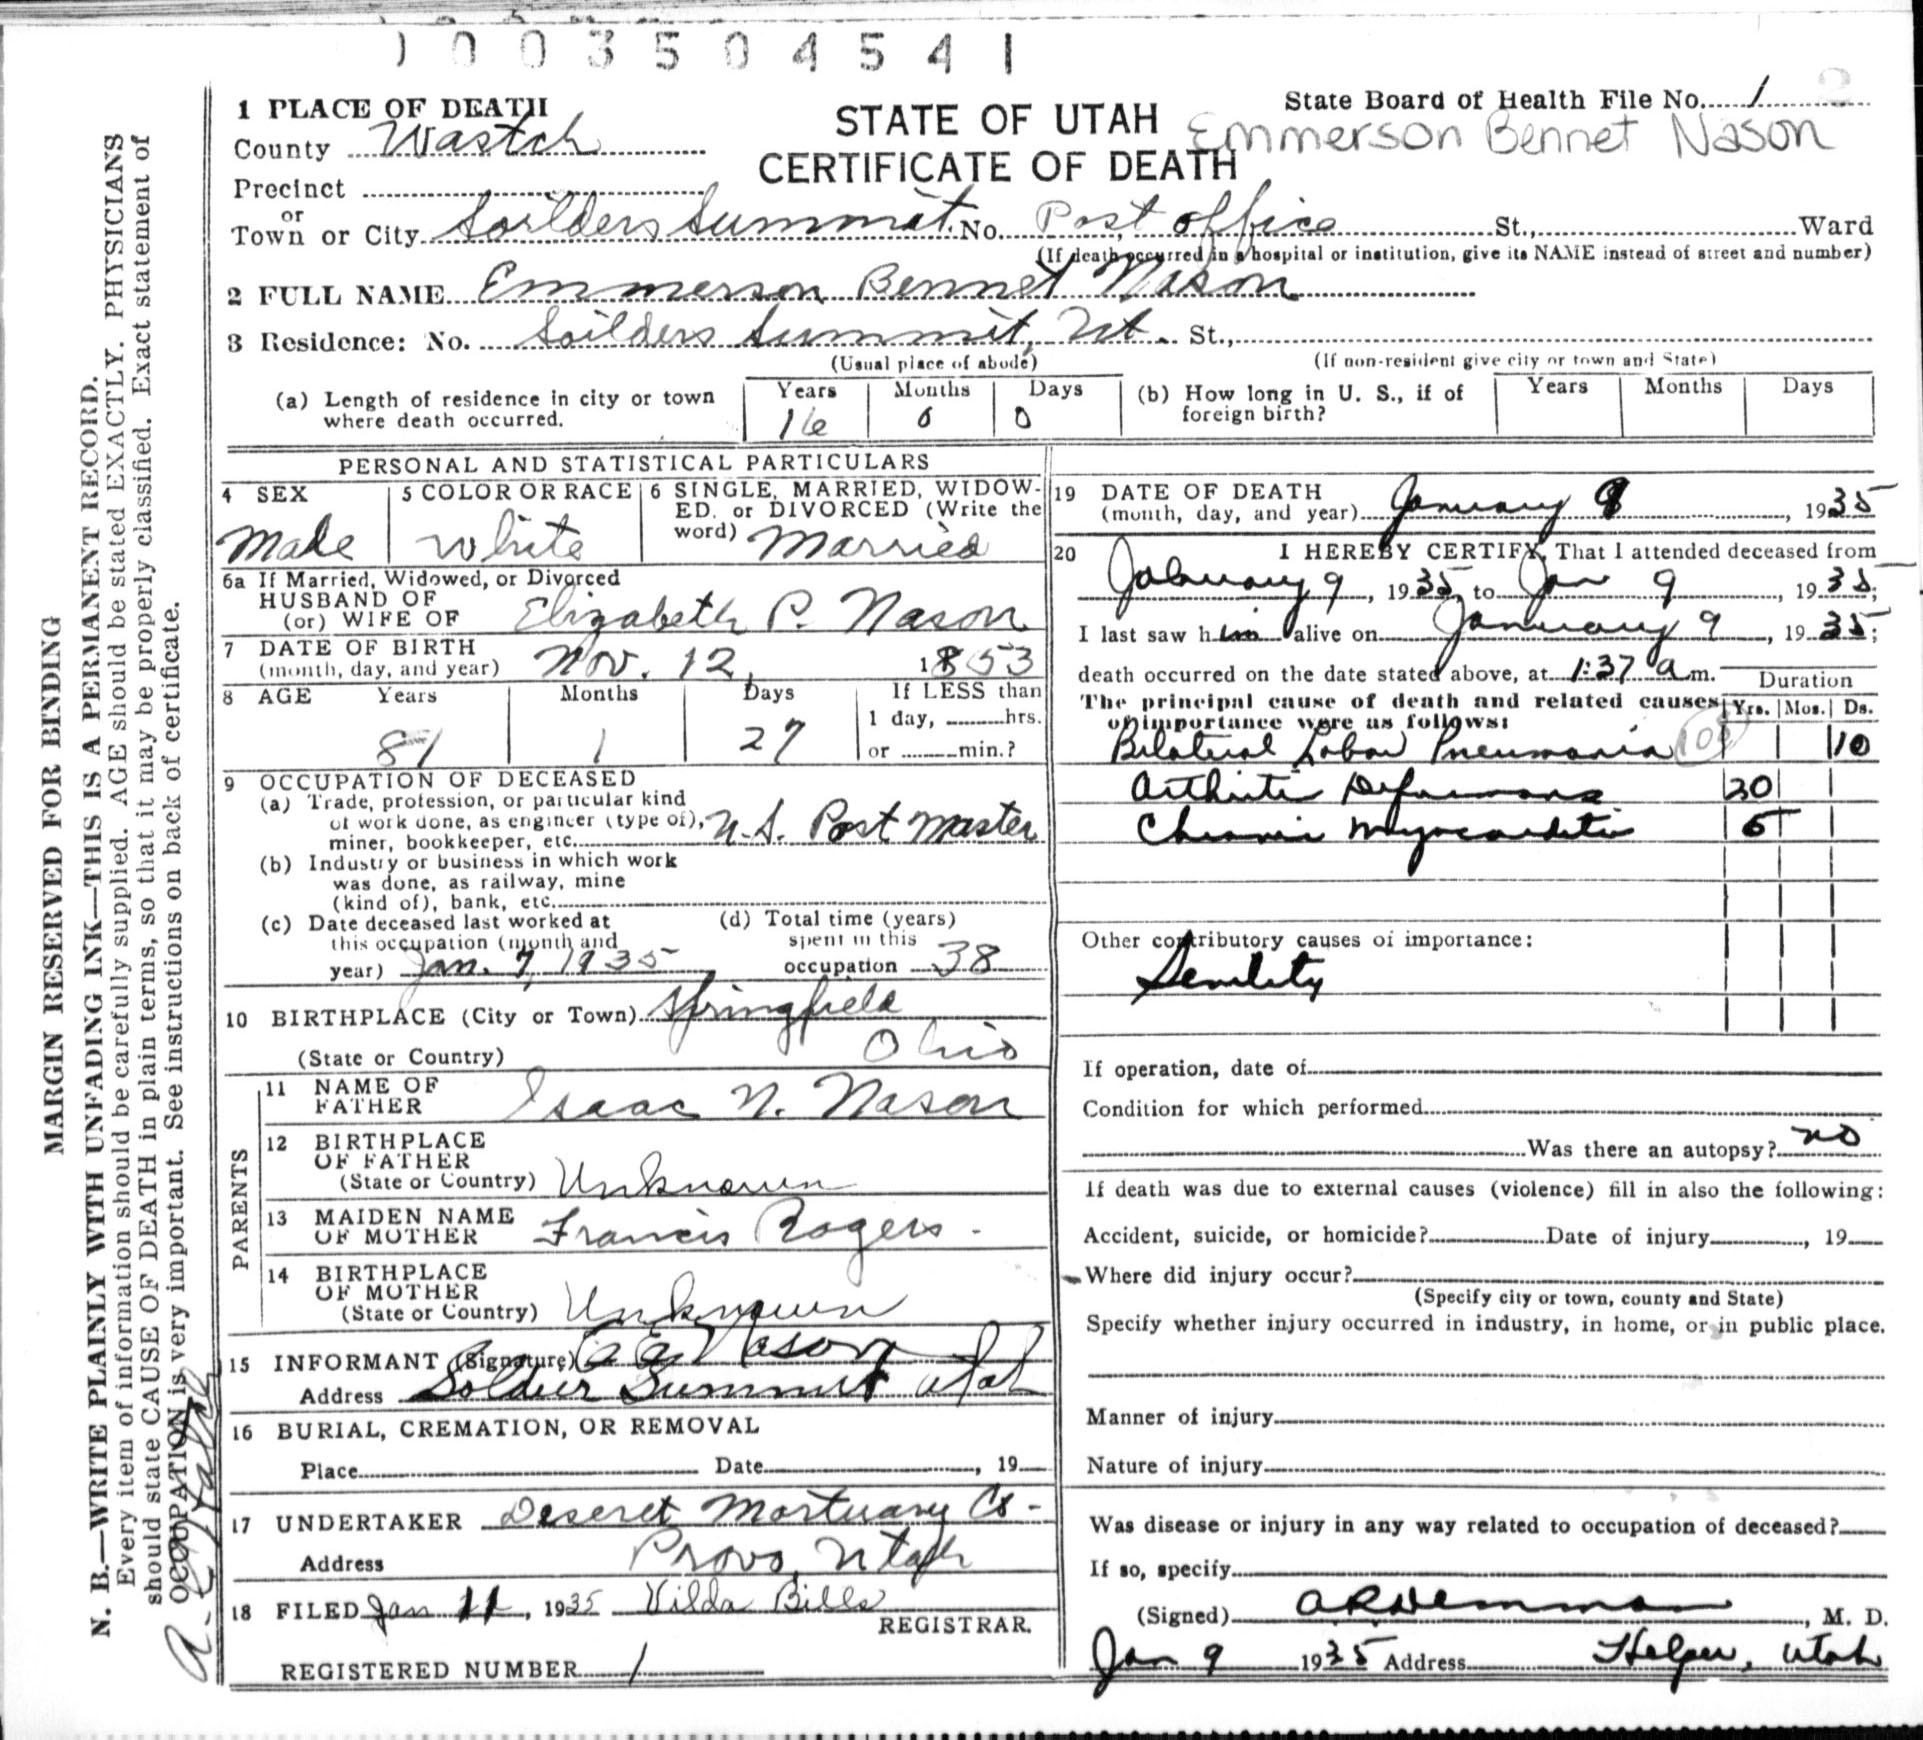 1003504541
1 PLACE OF DEATH
County Wastch
Precinct
or
Town or City Soilders Summit. No. Post office St., Ward
(If death occurred in a hospital or institution, give its NAME instead of street and number)
STATE OF UTAH
CERTIFICATE OF DEATH
State Board of Health File No. 1 2
Emmerson Bennet Nason
2 FULL NAME Emmerson Bennet Nason
3 Residence: No. Soilders Summit, Ut. St.,
(Usual place of abode) (If non-resident give city or town and State)
(a) Length of residence in city or town where death occurred. Years 16 Months 0 Days 0
(b) How long in U. S., if of foreign birth? Years Months Days
PERSONAL AND STATISTICAL PARTICULARS
4 SEX Male
5 COLOR OR RACE White
6 SINGLE, MARRIED, WIDOWED, or DIVORCED (Write the word) Married
6a If Married, Widowed, or Divorced
HUSBAND OF
(or) WIFE OF Elizabeth P. Nason
7 DATE OF BIRTH
(month, day, and year) Nov. 12, 1853
8 AGE Years 81 Months 1 Days 27 If LESS than
1 day, hrs.
or min.?
9 OCCUPATION OF DECEASED
(a) Trade, profession, or particular kind
of work done, as engineer (type of),
miner, bookkeeper, etc. U.S. Post Master
(b) Industry or business in which work
was done, as railway, mine
(kind of), bank, etc.
(c) Date deceased last worked at
this occupation (month and
year) Jan. 7, 1935
(d) Total time (years)
spent in this
occupation 38
10 BIRTHPLACE (City or Town) Springfield
(State or Country) Ohio
PARENTS
11 NAME OF
FATHER Isaac N. Nason
12 BIRTHPLACE
OF FATHER
(State or Country) Unknown
13 MAIDEN NAME
OF MOTHER Francis Rogers -
14 BIRTHPLACE
OF MOTHER
(State or Country) Unknown
15 INFORMANT (Signature) Nason
Address Soldier Summit Utah
16 BURIAL, CREMATION, OR REMOVAL
Place Date , 19
17 UNDERTAKER Deseret Mortuary Co -
Address Provo, Utah
18 FILED Jan 11, 1935 Vilda Bills
REGISTRAR.
REGISTERED NUMBER 1
19 DATE OF DEATH
(month, day, and year) January 9, 1935
20 I HEREBY CERTIFY, That I attended deceased from
January 9, 1935, to Jan 9, 1935;
I last saw him alive on January 9, 1935;
death occurred on the date stated above, at 1:37 a m.
The principal cause of death and related causes
of importance were as follows:
Duration
Yrs. Mos. Ds.
Bilateral Lobar Pneumonia 108 10
Arthritis Deformans 20
Chronic Myocarditis 5
Other contributory causes of importance:
Senility
If operation, date of
Condition for which performed
Was there an autopsy? no
If death was due to external causes (violence) fill in also the following:
Accident, suicide, or homicide? Date of injury , 19
Where did injury occur?
(Specify city or town, county and State)
Specify whether injury occurred in industry, in home, or in public place.
Manner of injury
Nature of injury
Was disease or injury in any way related to occupation of deceased?
If so, specify
(Signed) , M. D.
Jan 9 1935 Address Helper, Utah
MARGIN RESERVED FOR BINDING
N. B.—WRITE PLAINLY WITH UNFADING INK—THIS IS A PERMANENT RECORD.
Every item of information should be carefully supplied. AGE should be stated EXACTLY. PHYSICIANS
should state CAUSE OF DEATH in plain terms, so that it may be properly classified. Exact statement of
OCCUPATION is very important. See instructions on back of certificate.